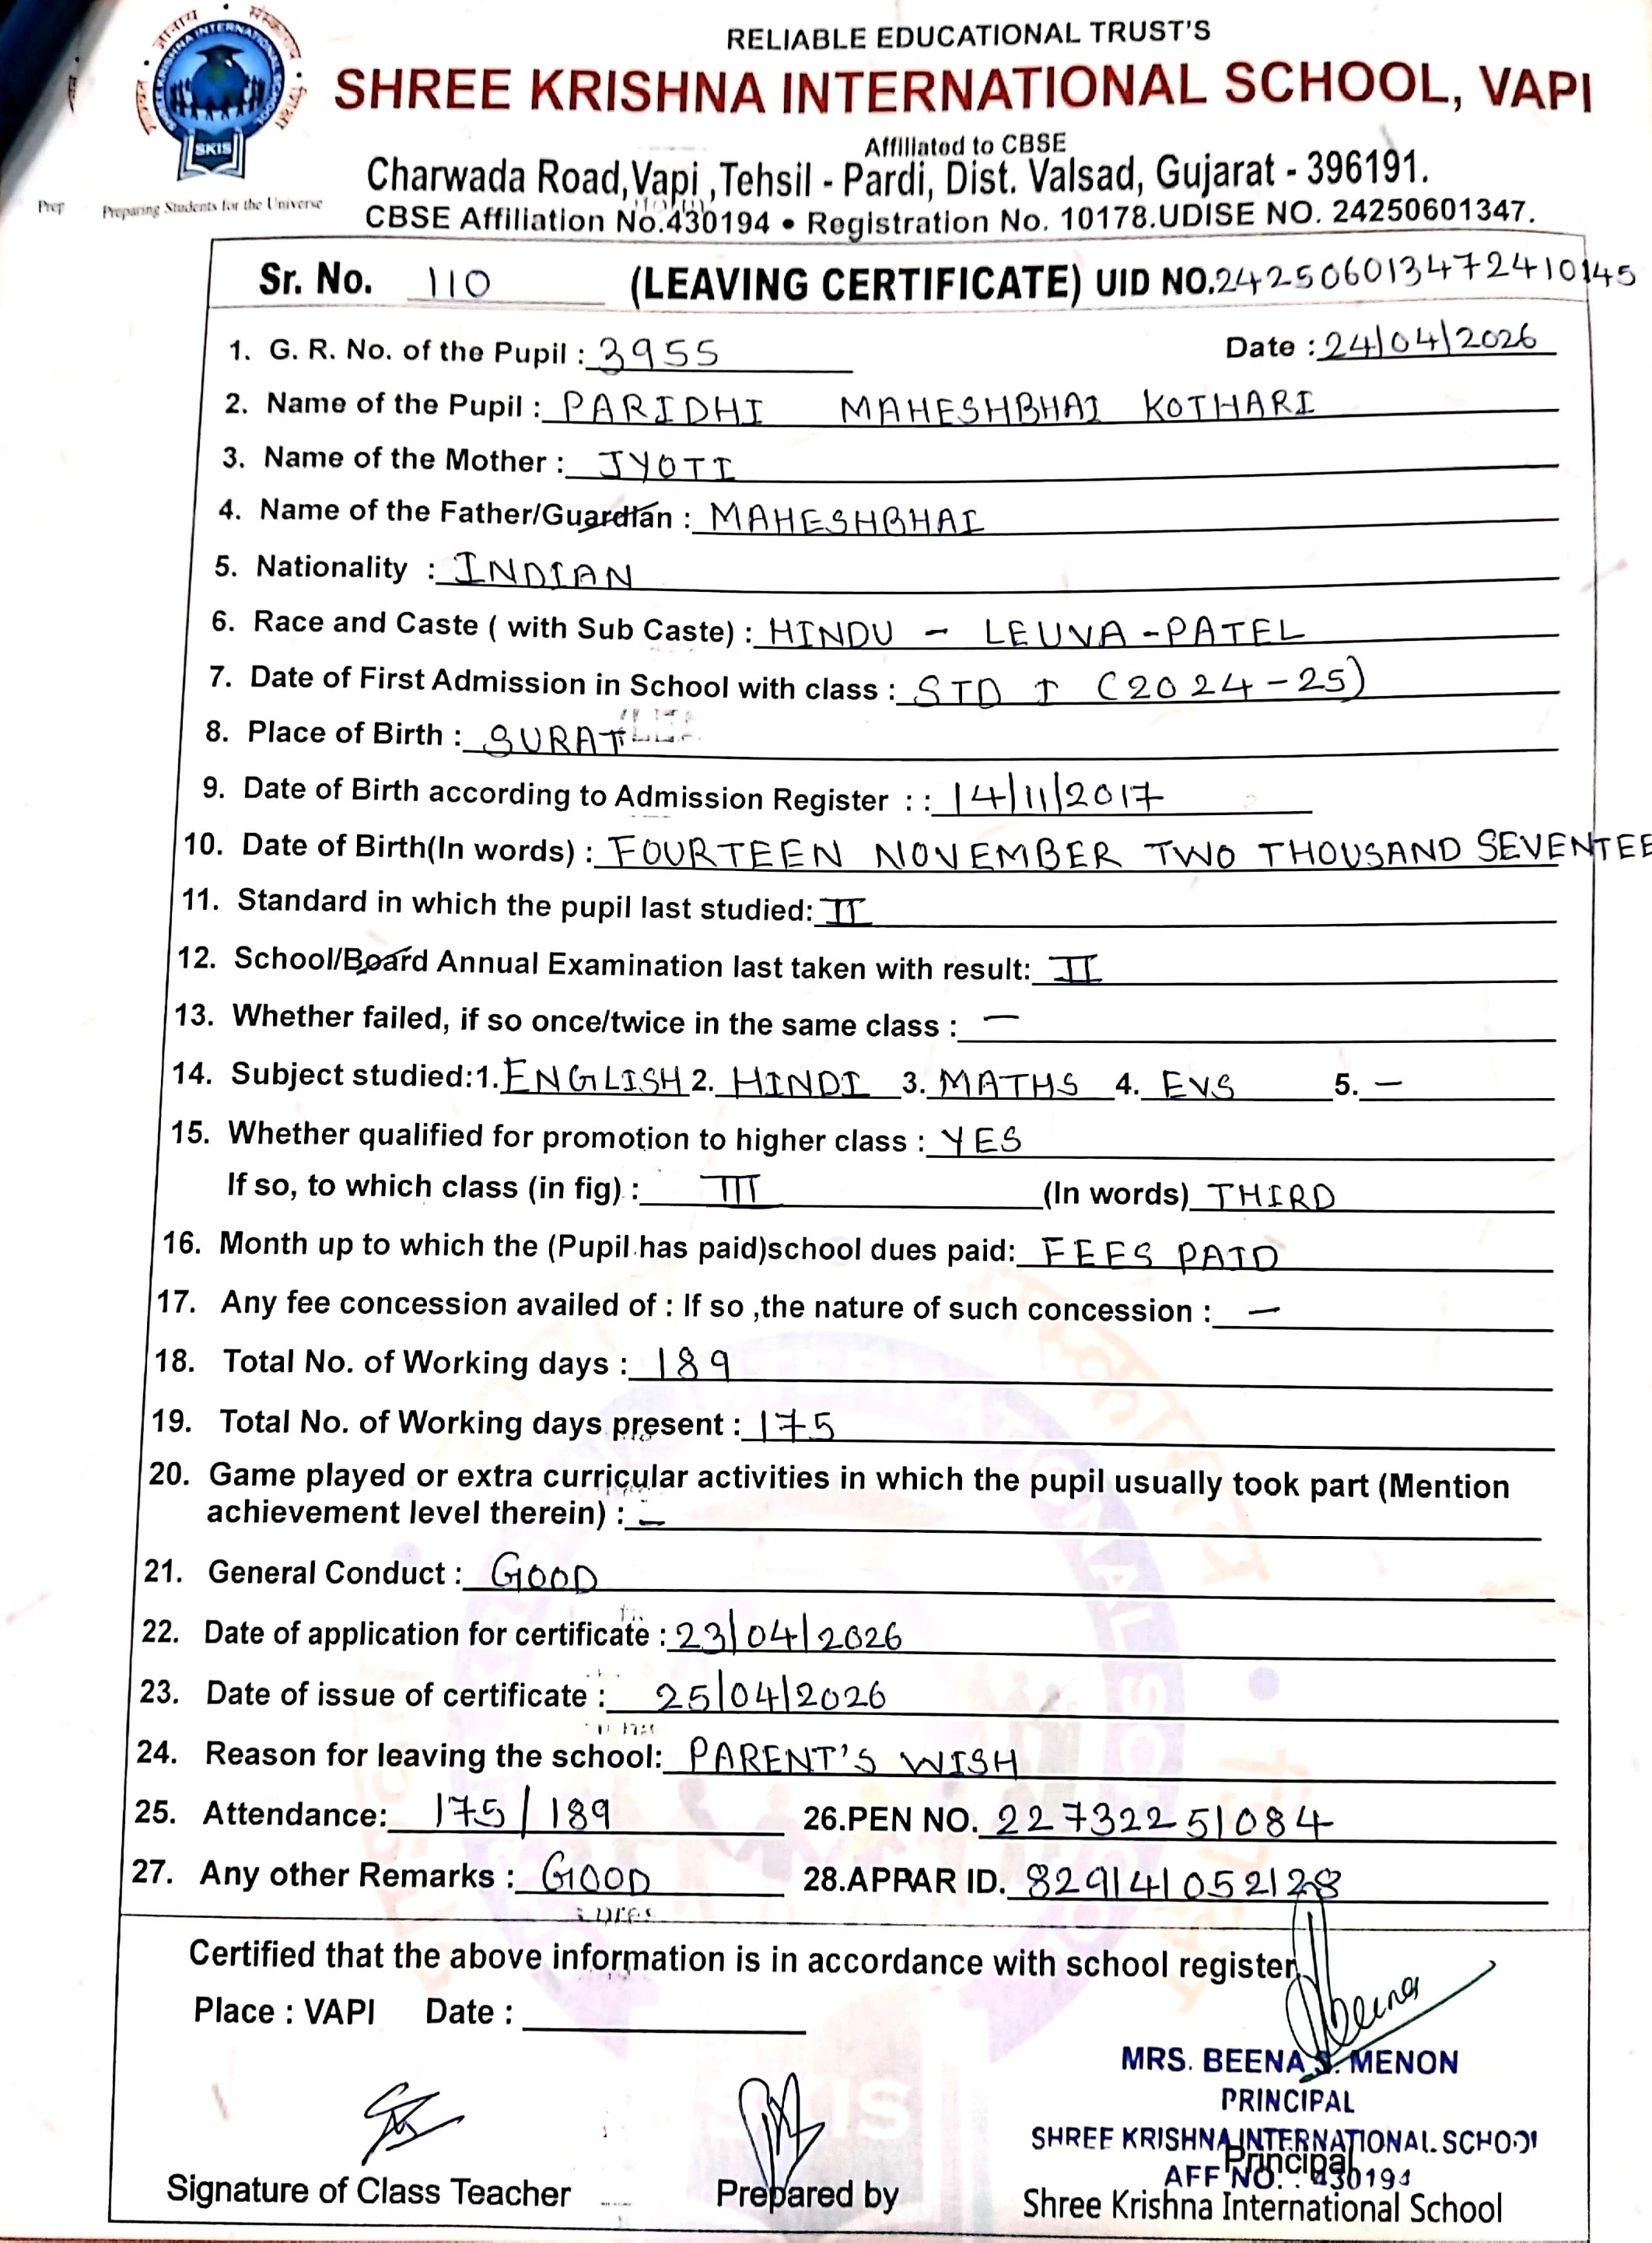 RELIABLE EDUCATIONAL TRUST'S
SHREE KRISHNA INTERNATIONAL SCHOOL, VAPI
Affiliated to CBSE
Charwada Road, Vapi , Tehsil - Pardi, Dist. Valsad, Gujarat - 396191.
CBSE Affiliation No.430194 • Registration No. 10178.UDISE NO. 24250601347.
SKIS
Prep Preparing Students for the Universe
Sr. No. 110 (LEAVING CERTIFICATE) UID NO.242506013472410145
1. G. R. No. of the Pupil : 3955 Date : 24/04/2026
2. Name of the Pupil : PARIDHI MAHESHBHAI KOTHARI
3. Name of the Mother : JYOTI
4. Name of the Father/Guardian : MAHESHBHAI
5. Nationality : INDIAN
6. Race and Caste ( with Sub Caste) : HINDU - LEUVA - PATEL
7. Date of First Admission in School with class : STD I (2024-25)
8. Place of Birth : SURAT
9. Date of Birth according to Admission Register : : 14/11/2017
10. Date of Birth(In words) : FOURTEEN NOVEMBER TWO THOUSAND SEVENTEE
11. Standard in which the pupil last studied: II
12. School/Board Annual Examination last taken with result: II
13. Whether failed, if so once/twice in the same class : —
14. Subject studied:1. ENGLISH 2. HINDI 3. MATHS 4. EVS 5. —
15. Whether qualified for promotion to higher class : YES
If so, to which class (in fig) : III (In words) THIRD
16. Month up to which the (Pupil has paid)school dues paid: FEES PAID
17. Any fee concession availed of : If so ,the nature of such concession : —
18. Total No. of Working days : 189
19. Total No. of Working days present : 175
20. Game played or extra curricular activities in which the pupil usually took part (Mention
achievement level therein) : —
21. General Conduct : GOOD
22. Date of application for certificate : 23/04/2026
23. Date of issue of certificate : 25/04/2026
24. Reason for leaving the school: PARENT'S WISH
25. Attendance: 175/189 26.PEN NO. 22732251084
27. Any other Remarks : GOOD 28.APPAR ID. 829141052128
Certified that the above information is in accordance with school register
Place : VAPI Date :
Beena
MRS. BEENA S. MENON
PRINCIPAL
SHREE KRISHNA INTERNATIONAL SCHOOL
AFF NO. : 430194
Principal
Signature of Class Teacher Prepared by Shree Krishna International School